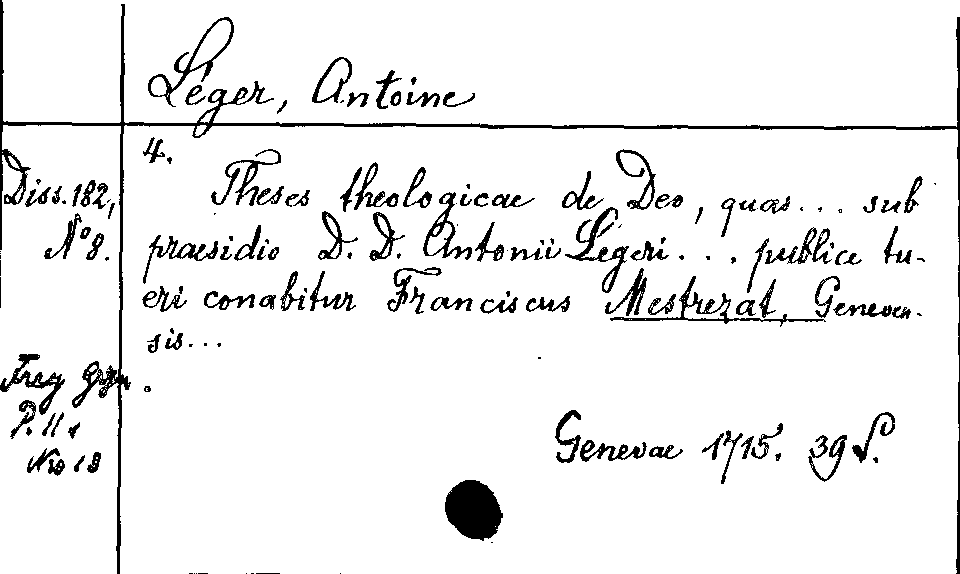 Léger, Antoine
4.
Diss. 182,
No 8.
Theses theologicae de Deo, quas... sub
praesidio D. D. Antonii Légeri... publice tu-
eri conabitur Franciscus Mestrezat, Geneven-
sis...
Frey Gryn.
P. 11
No 18
Genevae 1715. 39 S.